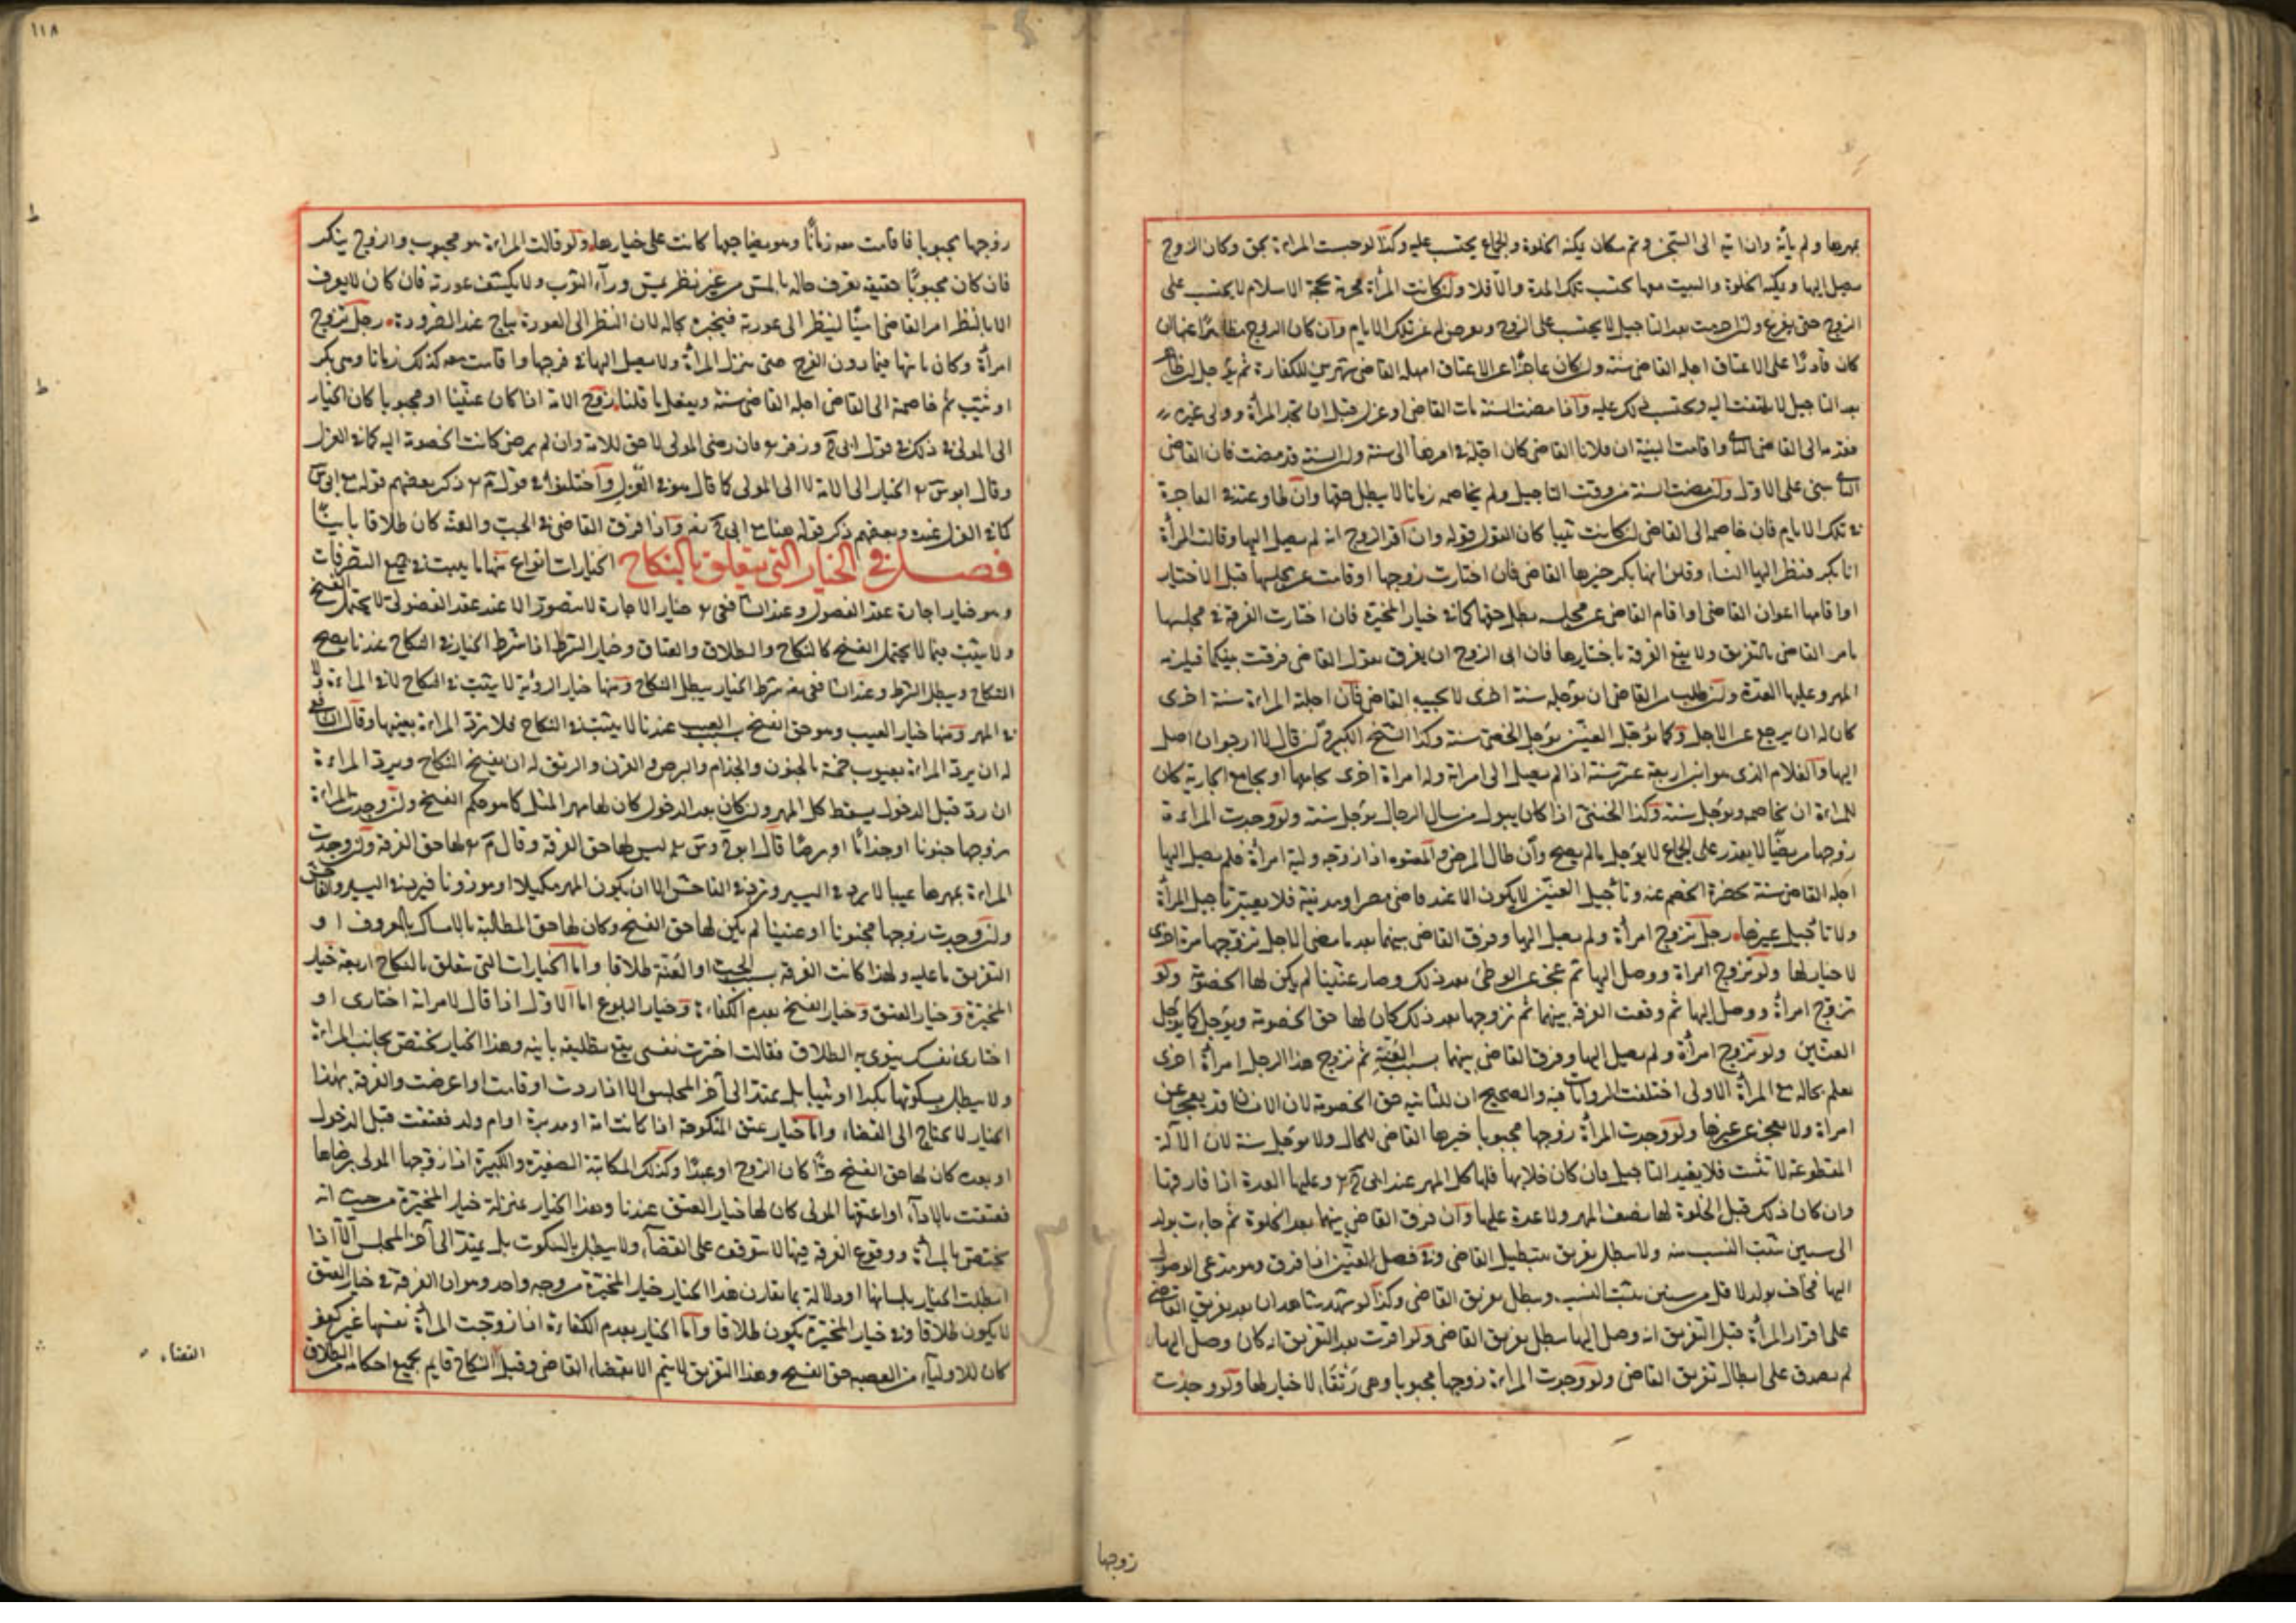 بمهرها ولم يأته وان اتته الى السجن وثم مكان يمكنه الخلوة والجماع يحتسب عليه وكذا لو حبست المراءة بحق وكان الزوج
يصل اليها ويمكنه الخلوة والمبيت معها يحتسب تلك المدة والا فلا ولو كانت المرأة محرمة بحجة الاسلام لا يحتسب على
الزوج حتى يفرغ ولو احرمت بعد التاجيل لا يحتسب على الزوج وعوض له عن تلك الايام وان كان الزوج مظاهرا عنها ان
كان قادرا على الاعتاق اجله القاضى سنة وان كان عاجزا عن الاعتاق امهله القاضى شهرين للكفارة ثم يؤجل
بعد التاجيل لا يلتفت اليه ويحتسب ذلك عليه واذا مضت السنة مات القاضى او عزل قبل ان تخير المرأة وولى غيره
فقدمها الى القاضى الثانى واقامت البينة ان فلانا القاضى كان اجله فى امرها الى سنة وان السنة قد مضت فان القاضى
الثانى يبنى على الاول وان مضت السنة من وقت التاجيل ولم يخاصمه زمانا لا يبطل حقها وان طاوعته فى المضاجعة
فى تلك الايام فان خاصمه الى القاضى ان كانت ثيبا كان القول قوله وان اقر الزوج انه لم يصل اليها وقالت المرأة
انا بكر فنظر اليها النساء وقلن انها بكر خيرها القاضى فان اختارت زوجها او قامت عن مجلسها قبل الاختيار
او اقامها اعوان القاضى او اقام القاضى عن مجلسه بطل حقها كما فى خيار المخيرة فان اختارت الفرقة فى مجلسها
يامر القاضى بالتفريق ولا يقع الفرقة باختيارها فان ابى الزوج ان يفرق يقول القاضى فرقت بينكما فيلزمه
المهر وعليها العدة ولو طلب من القاضى ان يؤجله سنة اخرى لا يجيبه القاضى فان اجلته المراءة سنة اخرى
كان له ان يرجع عن الاجل وكما يؤجل العنين يؤجل الخصى سنة وكذا الشيخ الكبير وان قال لا ارجو ان اصل
اليها والغلام الذى هو ابن اربعة عشر سنة اذا لم يصل الى امراته وله امراة اخرى يجامعها او يجامع الجارية كان
للمراءة ان تخاصمه ويؤجل سنة وكذا الخنثى اذا كان يبول من مبال الرجال يؤجل سنة ولو وجدت المراءة
زوجها مريضا لا يقدر على الجماع لا يؤجل ما لم يصح وان طال المرض والمعتوه اذا زوجه وليه امرأة فلم يصل اليها
اجله القاضى سنة بحضرة الخصم عنه وتأجيل العنين لا يكون الا عند قاضى مصر او مدينة فلا يعتبر تاجيل المرأة
ولا تاجيل غيرها رجل تزوج امرأة ولم يصل اليها وفرق القاضى بينهما بعد ما مضى الاجل تزوجها مرة اخرى
لا خيار لها ولو تزوج امراة ووصل اليها ثم عجز عن الوطئ بعد ذلك وصار عنينا لم يكن لها الخصومة ولو
تزوج امرأة ووصل اليها ثم وقعت الفرقة بينهما ثم تزوجها بعد ذلك كان لها حق الخصومة ويؤجل كما يؤجل
العنين ولو تزوج امرأة ولم يصل اليها وفرق القاضى بينهما بسبب العنة ثم تزوج هذا الرجل امرأة اخرى
تعلم بحاله مع المرأة الاولى اختلفت الروايات فيه والصحيح ان للثانية حق الخصومة لان الانسان قد يعجز عن
امراة ولا يعجز عن غيرها ولو وجدت المرأة زوجها مجبوبا خيرها القاضى للحال ولا يؤجل سنة لان الآلة
المقطوعة لا تنبت فلا يفيد التاجيل فان كان خلا بها فلها كل المهر عند ابى ح رح وعليها العدة اذا فارقها
وان كان ذلك قبل الخلوة لها نصف المهر ولا عدة عليها وان فرق القاضى بينهما بعد الخلوة ثم جاءت بولد
الى سنتين يثبت النسب منه ولا يبطل تفريق القاضى وفى فصل العنين اذا فرق وهو يدعى الوصول
اليها فجاءت بولد لاقل من سنتين يثبت النسب ويبطل تفريق القاضى وكذا لو شهد شاهدان بعد تفريق القاضى
على اقرار المرأة قبل التفريق انه وصل اليها يبطل تفريق القاضى ولو اقرت بعد التفريق انه كان وصل اليها
لم تصدق على ابطال تفريق القاضى ولو وجدت المراءة زوجها مجبوبا وهى رتقاء لا خيار لها ولو وجدت
زوجها
١١٨
زوجها مجبوبا فاقامت معه زمانا وهو يضاجعها كانت على خيارها ولو قالت المراءة هو مجبوب والزوج ينكر
فان كان مجبوبا حقيقة يعرف حاله بالمس من غير نظر يمس وراء الثوب ولا يكشف عورته فان كان لا يعرف
الا بالنظر امر القاضى امينا لينظر الى عورته فيخبره بحاله لان النظر الى العورة يباح عند الضرورة رجل تزوج
امرأة وكان ياتيها فيما دون الفرج حتى ينزل المرأة ولا يصل اليها فى فرجها واقامت معه كذلك زمانا وهى بكر
او ثيب ثم خاصمته الى القاضى اجله القاضى سنة ويفعل ما قلنا زوج الامة اذا كان عنينا او مجبوبا كان الخيار
الى المولى فى ذلك فى قول ابى ح وزفر رح فان رضى المولى لا حق للامة وان لم يرض كانت الخصومة اليه كما فى العزل
وقال ابو س رح الخيار الى الامة لا الى المولى كما قال هو فى العزل واختلفوا فى قول م رح ذكر بعضهم قوله مع ابى س
كما فى العزل عنده وبعضهم ذكر قوله هنا مع ابى ح رح واذا فرق القاضى فى الجب والعنة كان طلاقا باينا
فصل فى الخيار التى يتعلق بالنكاح الخيارات انواع منها ما يثبت فى جميع التصرفات
وهو خيار اجازة عقد الفضولى وعند الشافعى رح خيار الاجازة لا يتصور الا عند عقد الفضولى لا يحتمل الفسخ
ولا يثبت فيما لا يحتمل الفسخ كالنكاح والطلاق والعتاق وخيار الشرط اذا شرط الخيار فى النكاح عندنا يصح
النكاح ويبطل الشرط وعند الشافعى رح شرط الخيار يبطل النكاح ومنها خيار الرؤية لا يثبت فى النكاح لا فى المراءة ولا
فى المهر ومنها خيار العيب وهو حق الفسخ بسبب العيب عندنا لا يثبت فى النكاح فلا ترد المراءة بعيبها وقال الشافعى
له ان يرد المراءة بعيوب خمسة بالجنون والجذام والبرص والقرن والرتق له ان يفسخ النكاح ويرد المراءة
ان رد قبل الدخول يسقط كل المهر وان كان بعد الدخول كان لها مهر المثل كما هو حكم الفسخ ولو وجدت المراءة
زوجها مجنونا او جذاما او برصا قال ابو ح وس رح ليس لها حق الفرقة وقال م رح لها حق الفرقة ولو وجدت
المراءة بمهرها عيبا لا يرد فى اليسير وترد فى الفاحش الا ان يكون المهر مكيلا او موزونا فيرد فى اليسير والفاحش
ولو وجدت زوجها مجنونا او عنينا لم يكن لها حق الفسخ وكان لها حق المطالبة بالامساك بالمعروف او
التفريق ما عليه ولهذا كانت الفرقة بسبب الجب او العنة طلاقا واما الخيارات التى تتعلق بالنكاح اربعة خيار
المخيرة وخيار العتق وخيار الفسخ بعدم الكفاءة وخيار البلوغ اما الاول اذا قال لامراته اختارى او
اختارى نفسك ينوى به الطلاق فقالت اخترت نفسى يقع تطليقة باينة وهذا الخيار يختص بجانب المراءة
ولا يبطل بسكوتها بكرا او ثيبا بل يمتد الى آخر المجلس الا اذا ردت او قامت او اعرضت والفرقة بهذا
الخيار لا يحتاج الى القضاء واما خيار عتق المنكوحة اذا كانت امة او مدبرة او ام ولد فعتقت قبل الدخول
او بعده كان لها حق الفسخ حرا كان الزوج او عبدا وكذلك المكاتبة الصغيرة والكبيرة اذا زوجها المولى برضاها
فعتقت بالاداء او اعتقها المولى كان لها خيار العتق عندنا وهذا الخيار بمنزلة خيار المخيرة من حيث انه
يختص بالمرأة ووقوع الفرقة فيها لا يتوقف على القضاء ولا يبطل بالسكوت بل يمتد الى آخر المجلس الا اذا
ابطلت الخيار بلسانها او دلالة بما يقارن هذا الخيار خيار المخيرة من وجه واحد وهو ان الفرقة فى خيار العتق
لا يكون طلاقا وفى خيار المخيرة يكون طلاقا واما الخيار بعدم الكفاءة اذا زوجت المرأة نفسها غير كفو
كان للاولياء من العصبة حق الفسخ وهذا التفريق لا يتم الا بقضاء القاضى وقبل النكاح قايم بجميع احكامه من الطلاق
القضاء